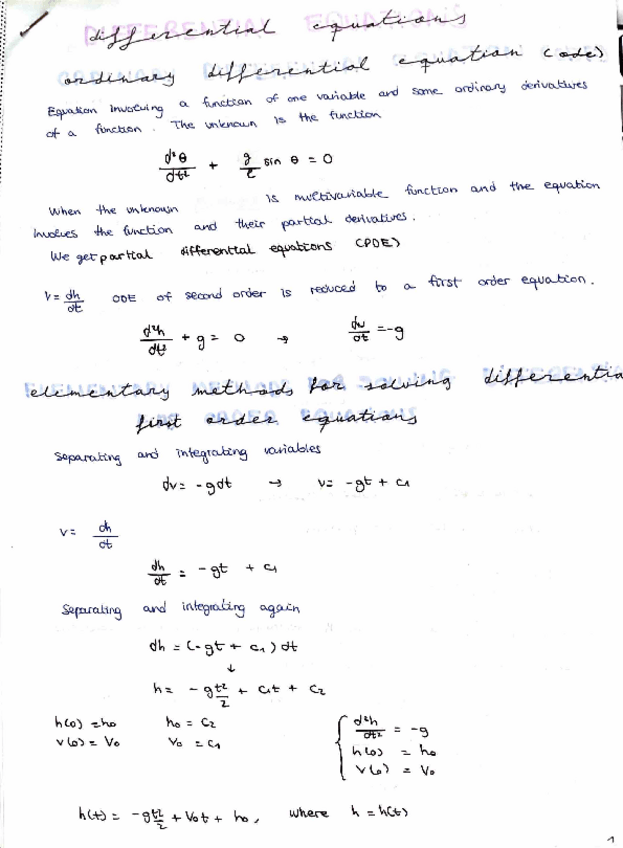 differential equations
ordinary differential equation (ode)
Equation involving a function of one variable and some ordinary derivatives
of a function. The unknown is the function
d²θ/dt² + g/l sin θ = 0
When the unknown is multivariable function and the equation
involves the function and their partial derivatives.
We get partial differential equations (PDE)
v = dh/dt ODE of second order is reduced to a first order equation.
d²h/dt² + g = 0 → dv/dt = -g
elementary methods for solving differentia
first order equations
Separating and integrating variables
dv = -gdt → v = -gt + c₁
v = dh/dt
dh/dt = -gt + c₁
Separating and integrating again
dh = (-gt + c₁) dt
↓
h = -g t²/2 + c₁t + c₂
h(0) = h₀ h₀ = c₂
v(0) = v₀ v₀ = c₁
{ d²h/dt² = -g
h(0) = h₀
v(0) = v₀
h(t) = -g t²/2 + v₀t + h₀, where h = h(t)
1